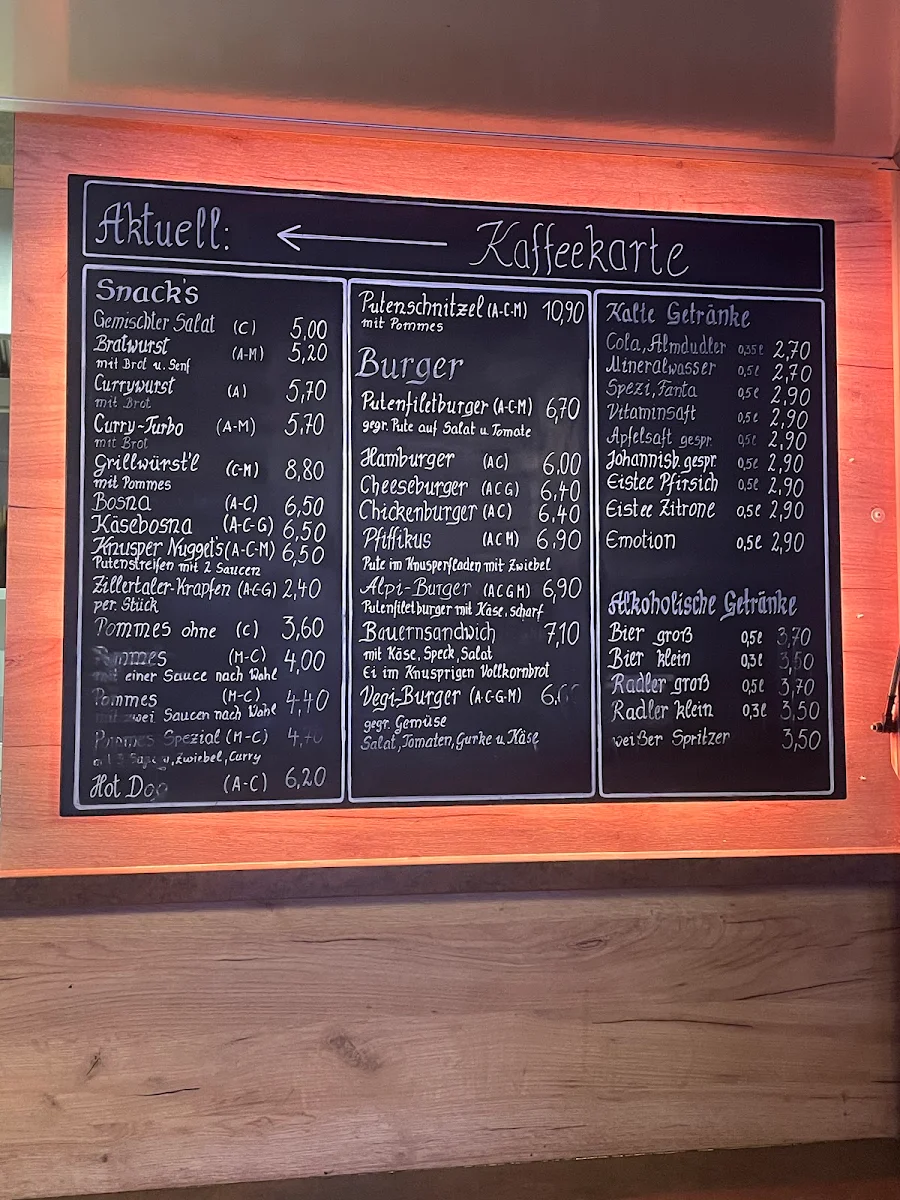 Aktuell: ← Kaffeekarte
Snack's
Gemischter Salat (C) 5,00
Bratwurst (A-M) 5,20
mit Brot u. Senf
Currywurst (A) 5,70
mit Brot
Curry-Turbo (A-M) 5,70
mit Brot
Grillwürst'l (C-M) 8,80
mit Pommes
Bosna (A-C) 6,50
Käsebosna (A-C-G) 6,50
Knusper Nugget's (A-C-M) 6,50
Putenstreifen mit 2 Saucen
Zillertaler-Krapfen (A-C-G) 2,40
per. Stück
Pommes ohne (C) 3,60
Pommes (M-C) 4,00
mit einer Sauce nach Wahl
Pommes (M-C) 4,40
mit zwei Saucen nach Wahl
Pommes Spezial (M-C)
u. Zwiebel, Curry
Hot Dog (A-C) 6,20
Putenschnitzel (A-C-M) 10,90
mit Pommes
Burger
Putenfiletburger (A-C-M) 6,70
gegr. Pute auf Salat u. Tomate
Hamburger (A C) 6,00
Cheeseburger (A C G) 6,40
Chickenburger (A C) 6,40
Pfiffikus (A C M) 6,90
Pute im Knusperfladen mit Zwiebel
Alpi-Burger (A C G M) 6,90
Putenfiletburger mit Käse, scharf
Bauernsandwich 7,10
mit Käse, Speck, Salat
Ei im Knusprigen Vollkornbrot
Vegi-Burger (A-C-G-M)
gegr. Gemüse
Salat, Tomaten, Gurke u. Käse
Kalte Getränke
Cola, Almdudler 0,35ℓ 2,70
Mineralwasser 0,5ℓ 2,70
Spezi, Fanta 0,5ℓ 2,90
Vitaminsaft 0,5ℓ 2,90
Apfelsaft gespr. 0,5ℓ 2,90
Johannisb. gespr. 0,5ℓ 2,90
Eistee Pfirsich 0,5ℓ 2,90
Eistee Zitrone 0,5ℓ 2,90
Emotion 0,5ℓ 2,90
Alkoholische Getränke
Bier groß 0,5ℓ 3,70
Bier klein 0,3ℓ 3,50
Radler groß 0,5ℓ 3,70
Radler klein 0,3ℓ 3,50
weißer Spritzer 3,50